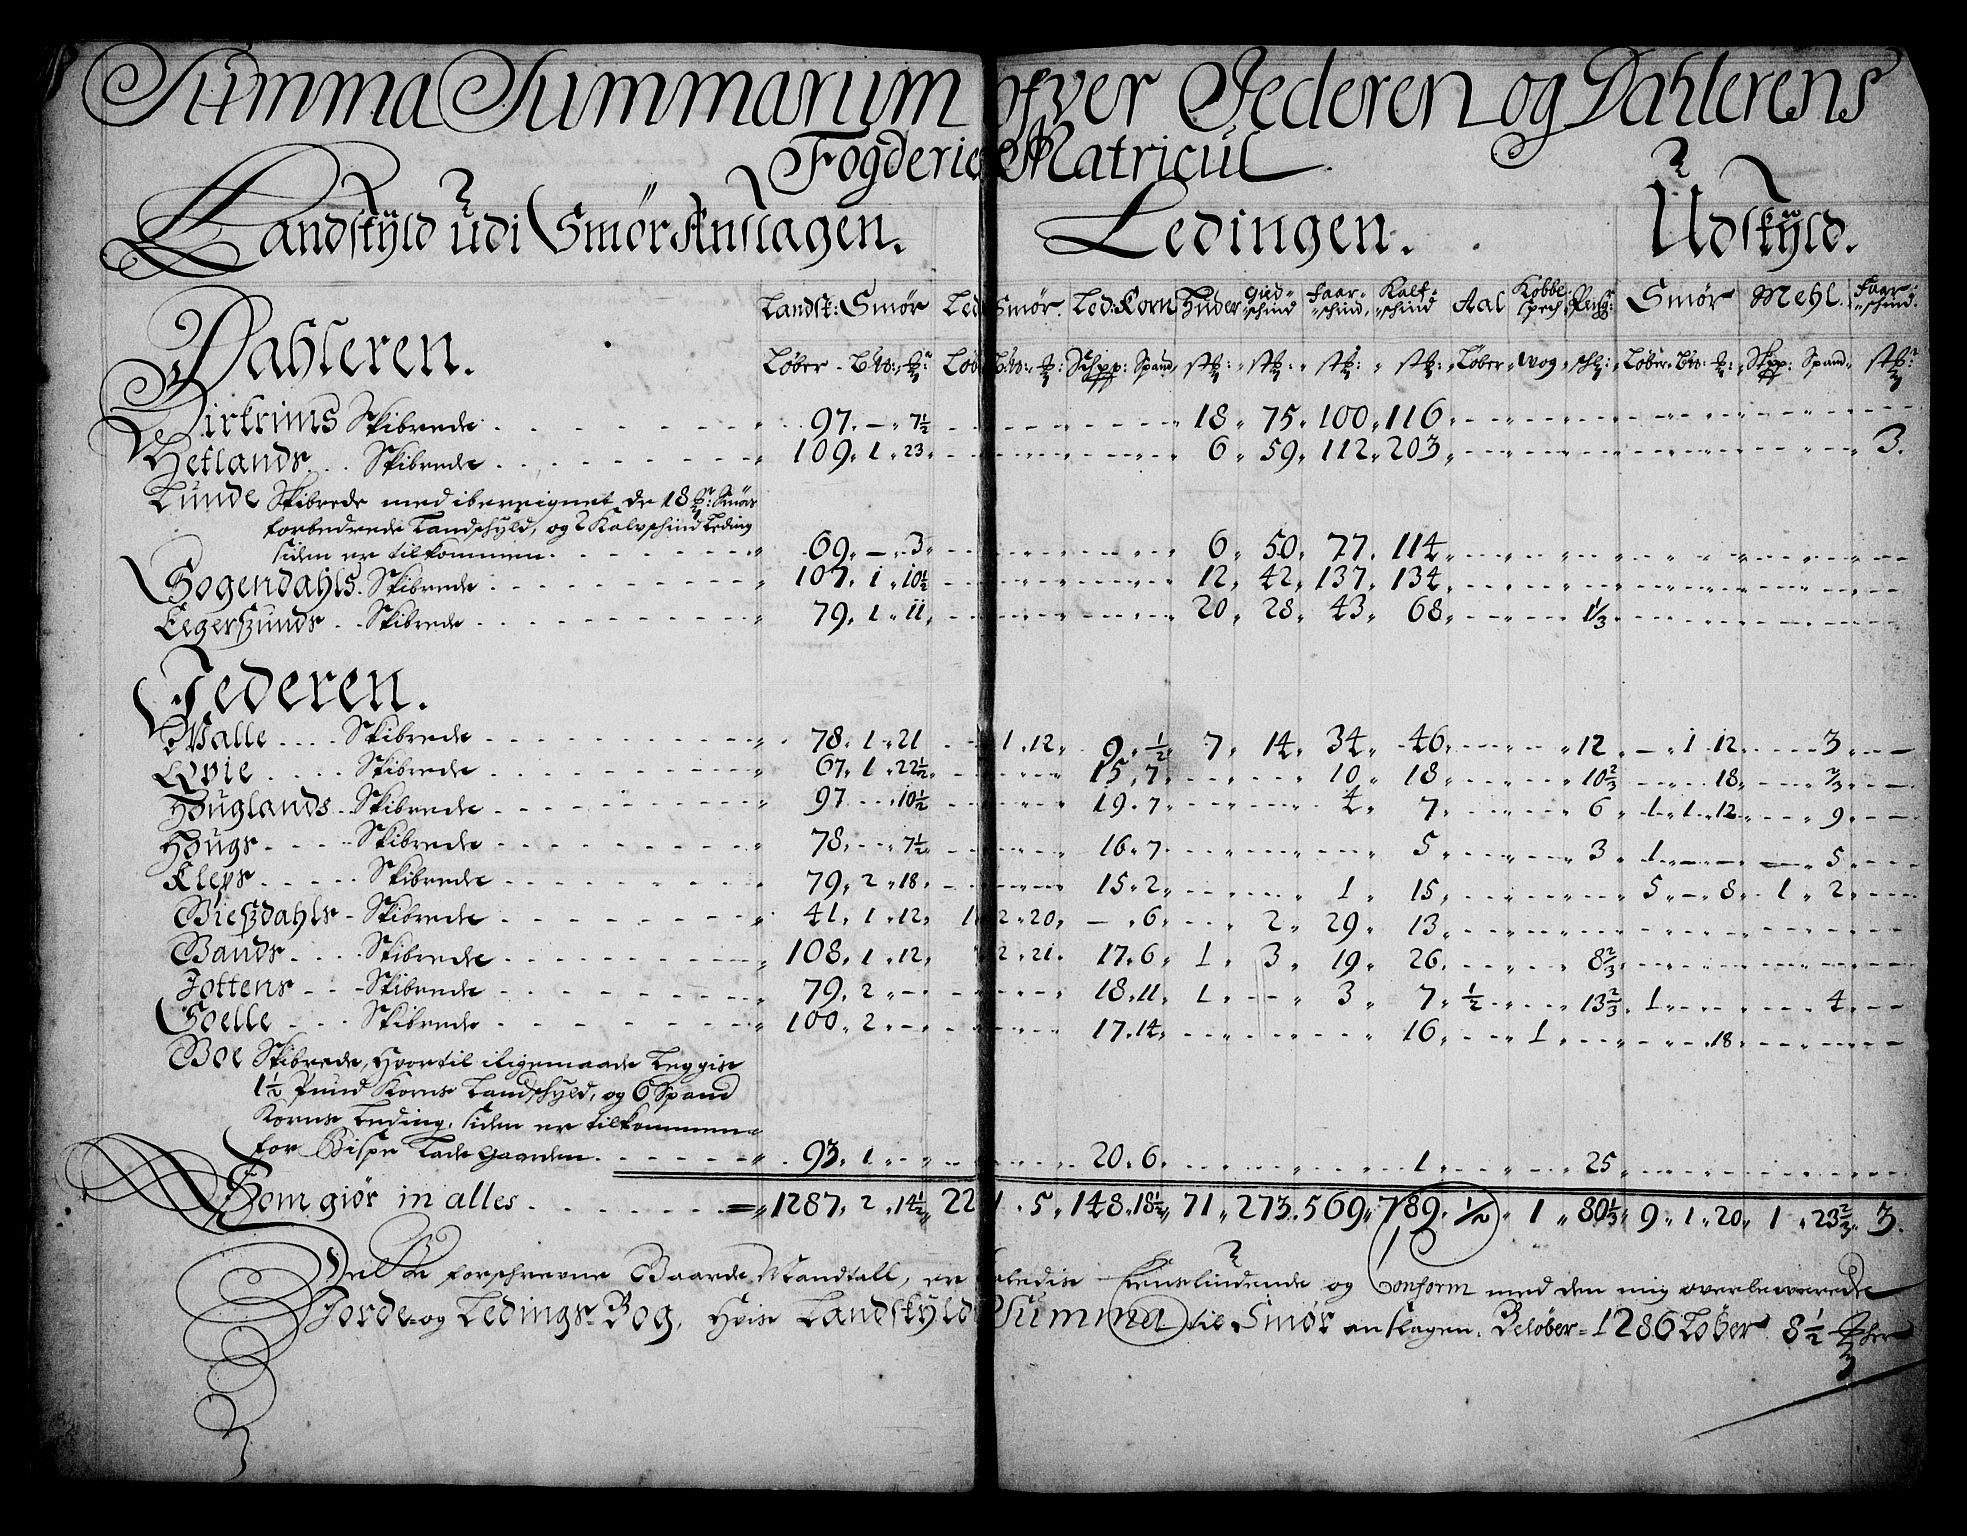 Summa Summarum ofver Jederen og Dahlerens
Fogderies Matricul
Landskÿld udi Smör Anslagen. Ledingen. Udskÿld.
Landsk: Smør Led: Smør. Led: Korn Huder Gied-schind Faar-schind Kalf-schind Aal Kobbe spech Peng: Smør Mehl. Faar-schind
Dahleren.
Løber Løb Schpp: Spand Løber Wog Løber Skpp: Spand
Birkrims Skibrede 97. — 7½ 18 75 100 116
Hetlands Skibrede 109. 1. 23 6 59 112 203 3.
Lunde Skibrede med ibereignet de 18 Smörs
forbedrede Landschyld, og 2 Kalvschind Leding
siden er tilkommen 69. — 3 6 50 77 114
Sogendahls Skibrede 107. 1. 10½ 12 42 137 134
Eegersunds Skibrede 79. 1. 11 20 28 43 68 1⅓
Jederen.
Malle Skibrede 78. 1. 21 1. 12 9. ½ 7 14 34 46 12 — 1 12 3
Qvie Skibrede 67. 1. 22½ 15. 7 10 18 10⅔ 18 ⅔
Houglands Skibrede 97 10½ 19. 7 4 7 6 1. 1. 12 9
Hougs Skibrede 78. 7½ 16. 7 5 3 1 — — 5
Kleps Skibrede 79. 2. 18 15. 2 1 15 5. — 8 1 2
Gieszdahls Skibrede 41. 1. 12 1 2. 20 — 6 2 29 13
Gands Skibrede 108. 1. 12 2. 21 17. 6 1 3 19 26 8⅔
Jottens Skibrede 79. 2 18. 11 1 3 7 ½ 13⅔ 1 4
Soelle Skibrede 100. 2 17. 14 16 1 18
Boe Skibrede, Hvortil iligemaade Leggis
1½ Pund Korns Landschyld, og 6 Spand
Korns Leding, siden er tilkommen
for Bispe Lade Gaarden 93. 1 20. 6 1 25
Som giör in alles 1287. 2. 14½ 22 1. 5 148. 18½ 71 273 569 789 ½ 1 80⅓ 9. 1. 20 1. 23⅔ 3.
forschrevne Gaarde Mandtall, er og Conform med den mig overleverede
Jorde- og Ledings Bog, Hvis Landskyld Summa til Smør anslagen, Beløber 1286 Løber 8½